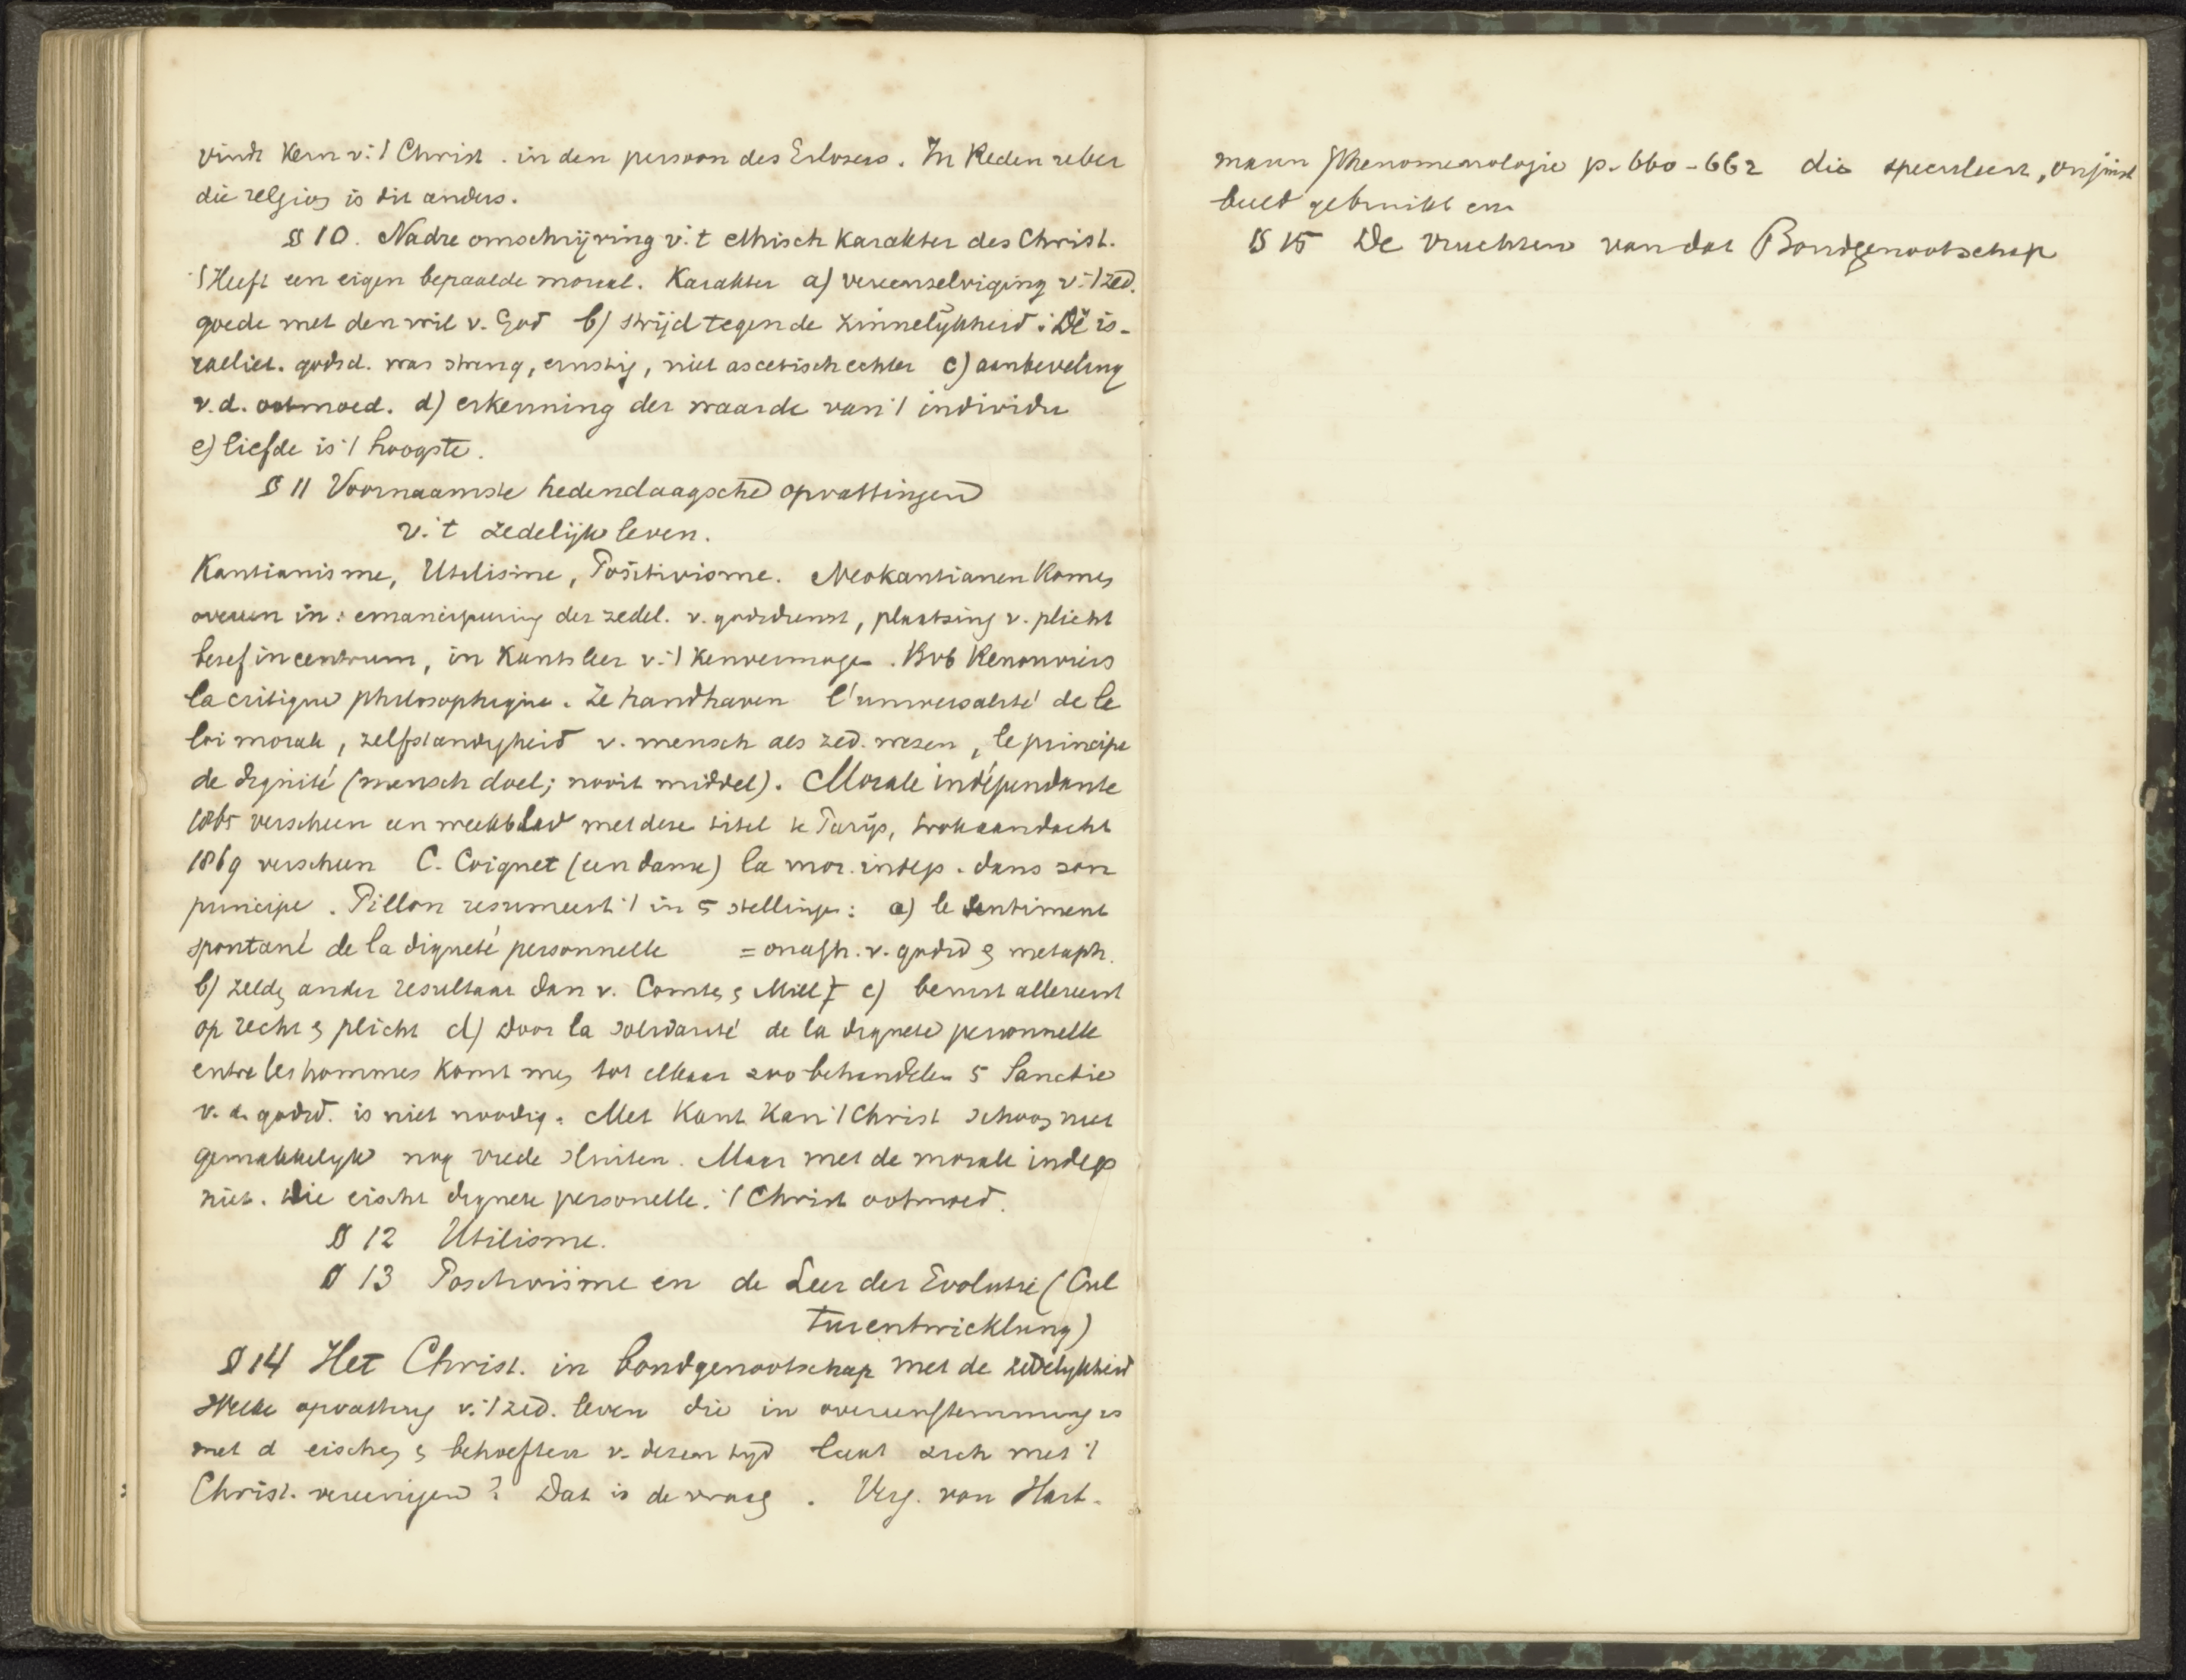 vindt Kern v. 't Christ. in den persoon des Erlosers. In Reden ueber
die religion is dit anders.
§ 10. Nadre omschrijving v. 't ethisch Karakter des Christ.
't Heeft een eigen bepaalde moraal. Karakter a) vereenzelviging v. 't zed.
goede met den wil v. God b) strijd tegen de zinnelijkheid: De is-
raeliet. godsd. was streng, ernstig, niet ascetisch echter c) aanbeveling
v.d. ootmoed. d) erkenning der waarde van 't individu
e) liefde is 't hoogste.
§ 11 Voornaamste hedendaagsche opvattingen
v. 't zedelijk leven.
Kantianisme, Utilisme, Positivisme. Neokantianen komen
overeen in: emancipeering der zedel. v. godsdienst, plaatsing v. plicht
besef in centrum, in Kants leer v. 't Kenvermogen. Bvb Renouviers
la critique philosophique. Ze handhaven l'universalité de le
loi morale, zelfstandigheid v. mensch als zed. wezen, le principe
de dignité (mensch doel; nooit middel). Morale indépendante
1865 verscheen een weekblad met deze titel te Parijs, trok aandacht
1869 verscheen C. Coignet (een dame) la mor. indep. dans son
principe. Pillon resumeert 't in 5 stellingen: a) le sentiment
spontané de la dignité personnelle = onafh. v. godsd & metaph.
b) zelfde ander resultaat dan v. Comte & Mill c) berust allereerst
op recht & plicht d) door la solidarité de la dignité personnelle
entre les hommes komt men tot elkaar zoo behandelen 5 Sanctie
v. d. godsd. is niet noodig. Met Kant kan 't Christ schoon niet
gemakkelijk nog vrede sluiten. Maar met de morale indep
niet. Die eischt dignité personelle. 't Christ ootmoed.
§ 12 Utilisme.
§ 13 Positivisme en de Leer der Evolutie (Cul
turentwicklung)
§ 14 Het Christ. in bondgenootschap met de zedelijkheid
Welke opvatting v. 't zed. leven die in overeenstemming is
met d eischen & behoeften v. dezen tijd laat zich met 't
Christ. vereenigen? Dat is de vraag. Verg. von Hart-
mann Phenomenologie p. 660-662 die speculeert,
§ 15 De vruchten van dat Bondgenootschap